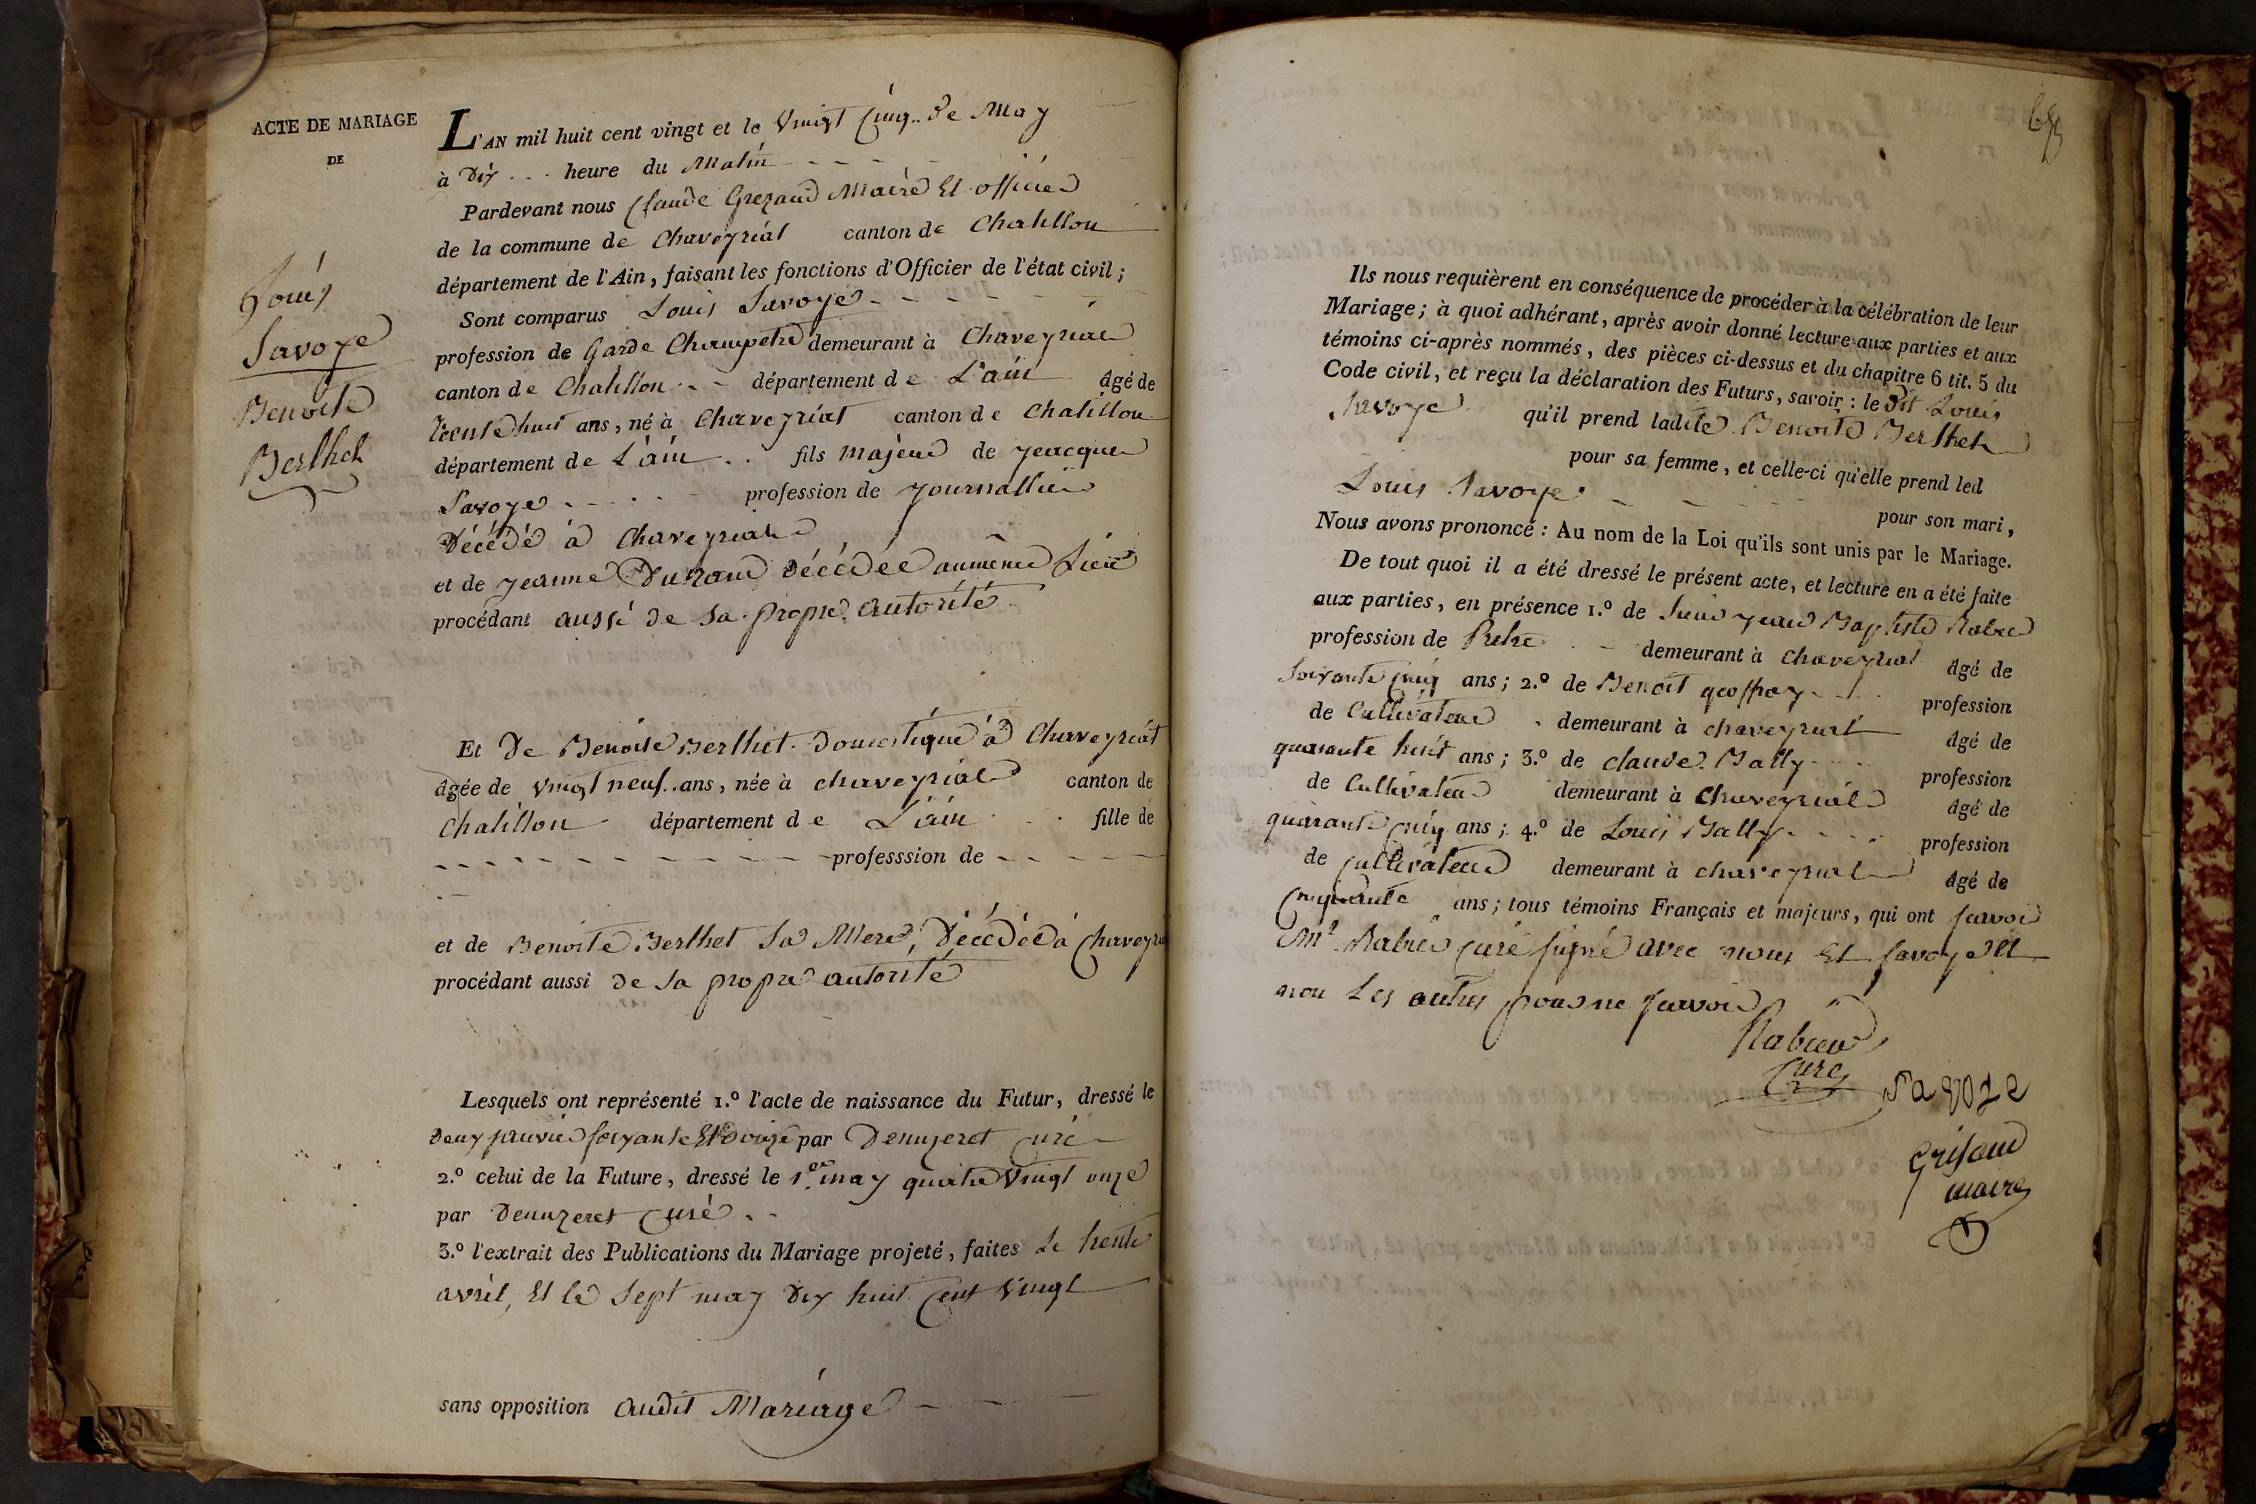 ACTE DE MARIAGE
DE
Louis
Savoye
Benoite
Berthet
L'AN mil huit cent vingt et le vingt cinq de May
à dix heure du Matin
Pardevant nous Claude Grezaud Maire Et officier
de la commune de Chaveyriat canton de Chatillon
département de l'Ain, faisant les fonctions d'Officier de l'état civil ;
Sont comparus Louis Savoye
profession de Garde Champetre demeurant à Chaveyriat
canton de Chatillon département de L'ain âgé de
trente huit ans, né à Chaveyriat canton de Chatillon
département de L'ain fils majeur de jeacque
Savoye profession de journallier
décédé à Chaveyriat
et de jeanne décédée aumême Lieu
procédant aussi de sa propre autorité
Et De Benoite Berthet domestique à Chaveyriat
âgée de vingt neuf ans, née à chaveyriat canton de
Chatillon département de L'ain fille de
professsion de
et de Benoite Berthet Sa Mere, décédée à Chaveyria
procédant aussi de sa propre autorité
Lesquels ont représenté 1.º l'acte de naissance du Futur, dressé le
deux janvier par curé
2.º celui de la Future, dressé le 1er may quatre vingt onze
par curé
3.º l'extrait des Publications du Mariage projeté, faites Le trente
avril, Et le Sept may dix huit Cent vingt
sans opposition audit Mariage
Ils nous requièrent en conséquence de procéder à la célébration de leur
Mariage ; à quoi adhérant, après avoir donné lecture aux parties et aux
témoins ci-après nommés, des pièces ci-dessus et du chapitre 6 tit. 5 du
Code civil, et reçu la déclaration des Futurs, savoir : le dit Louis
Savoye qu'il prend ladite Benoite Berthet
pour sa femme, et celle-ci qu'elle prend led
Louis Savoye
pour son mari,
Nous avons prononcé : Au nom de la Loi qu'ils sont unis par le Mariage.
De tout quoi il a été dressé le présent acte, et lecture en a été faite
aux parties, en présence 1.º de jean Baptiste
profession de Pretre demeurant à chaveyriat âgé de
soixante cinq ans ; 2.º de Benoit geoffray profession
de Cultivateur demeurant à chaveyriat âgé de
quarante huit ans ; 3.º de claude Bally profession
de Cultivateur demeurant à Chaveyriat âgé de
quarante cinq ans ; 4.º de Louis Bally profession
de cultivateur demeurant à chaveyriat âgé de
cinquante ans ; tous témoins Français et majeurs, qui ont savoir
Mr curé signé avec nous Et Savoye Et
non Les autres pour ne savoir
curé
Savoye
maire